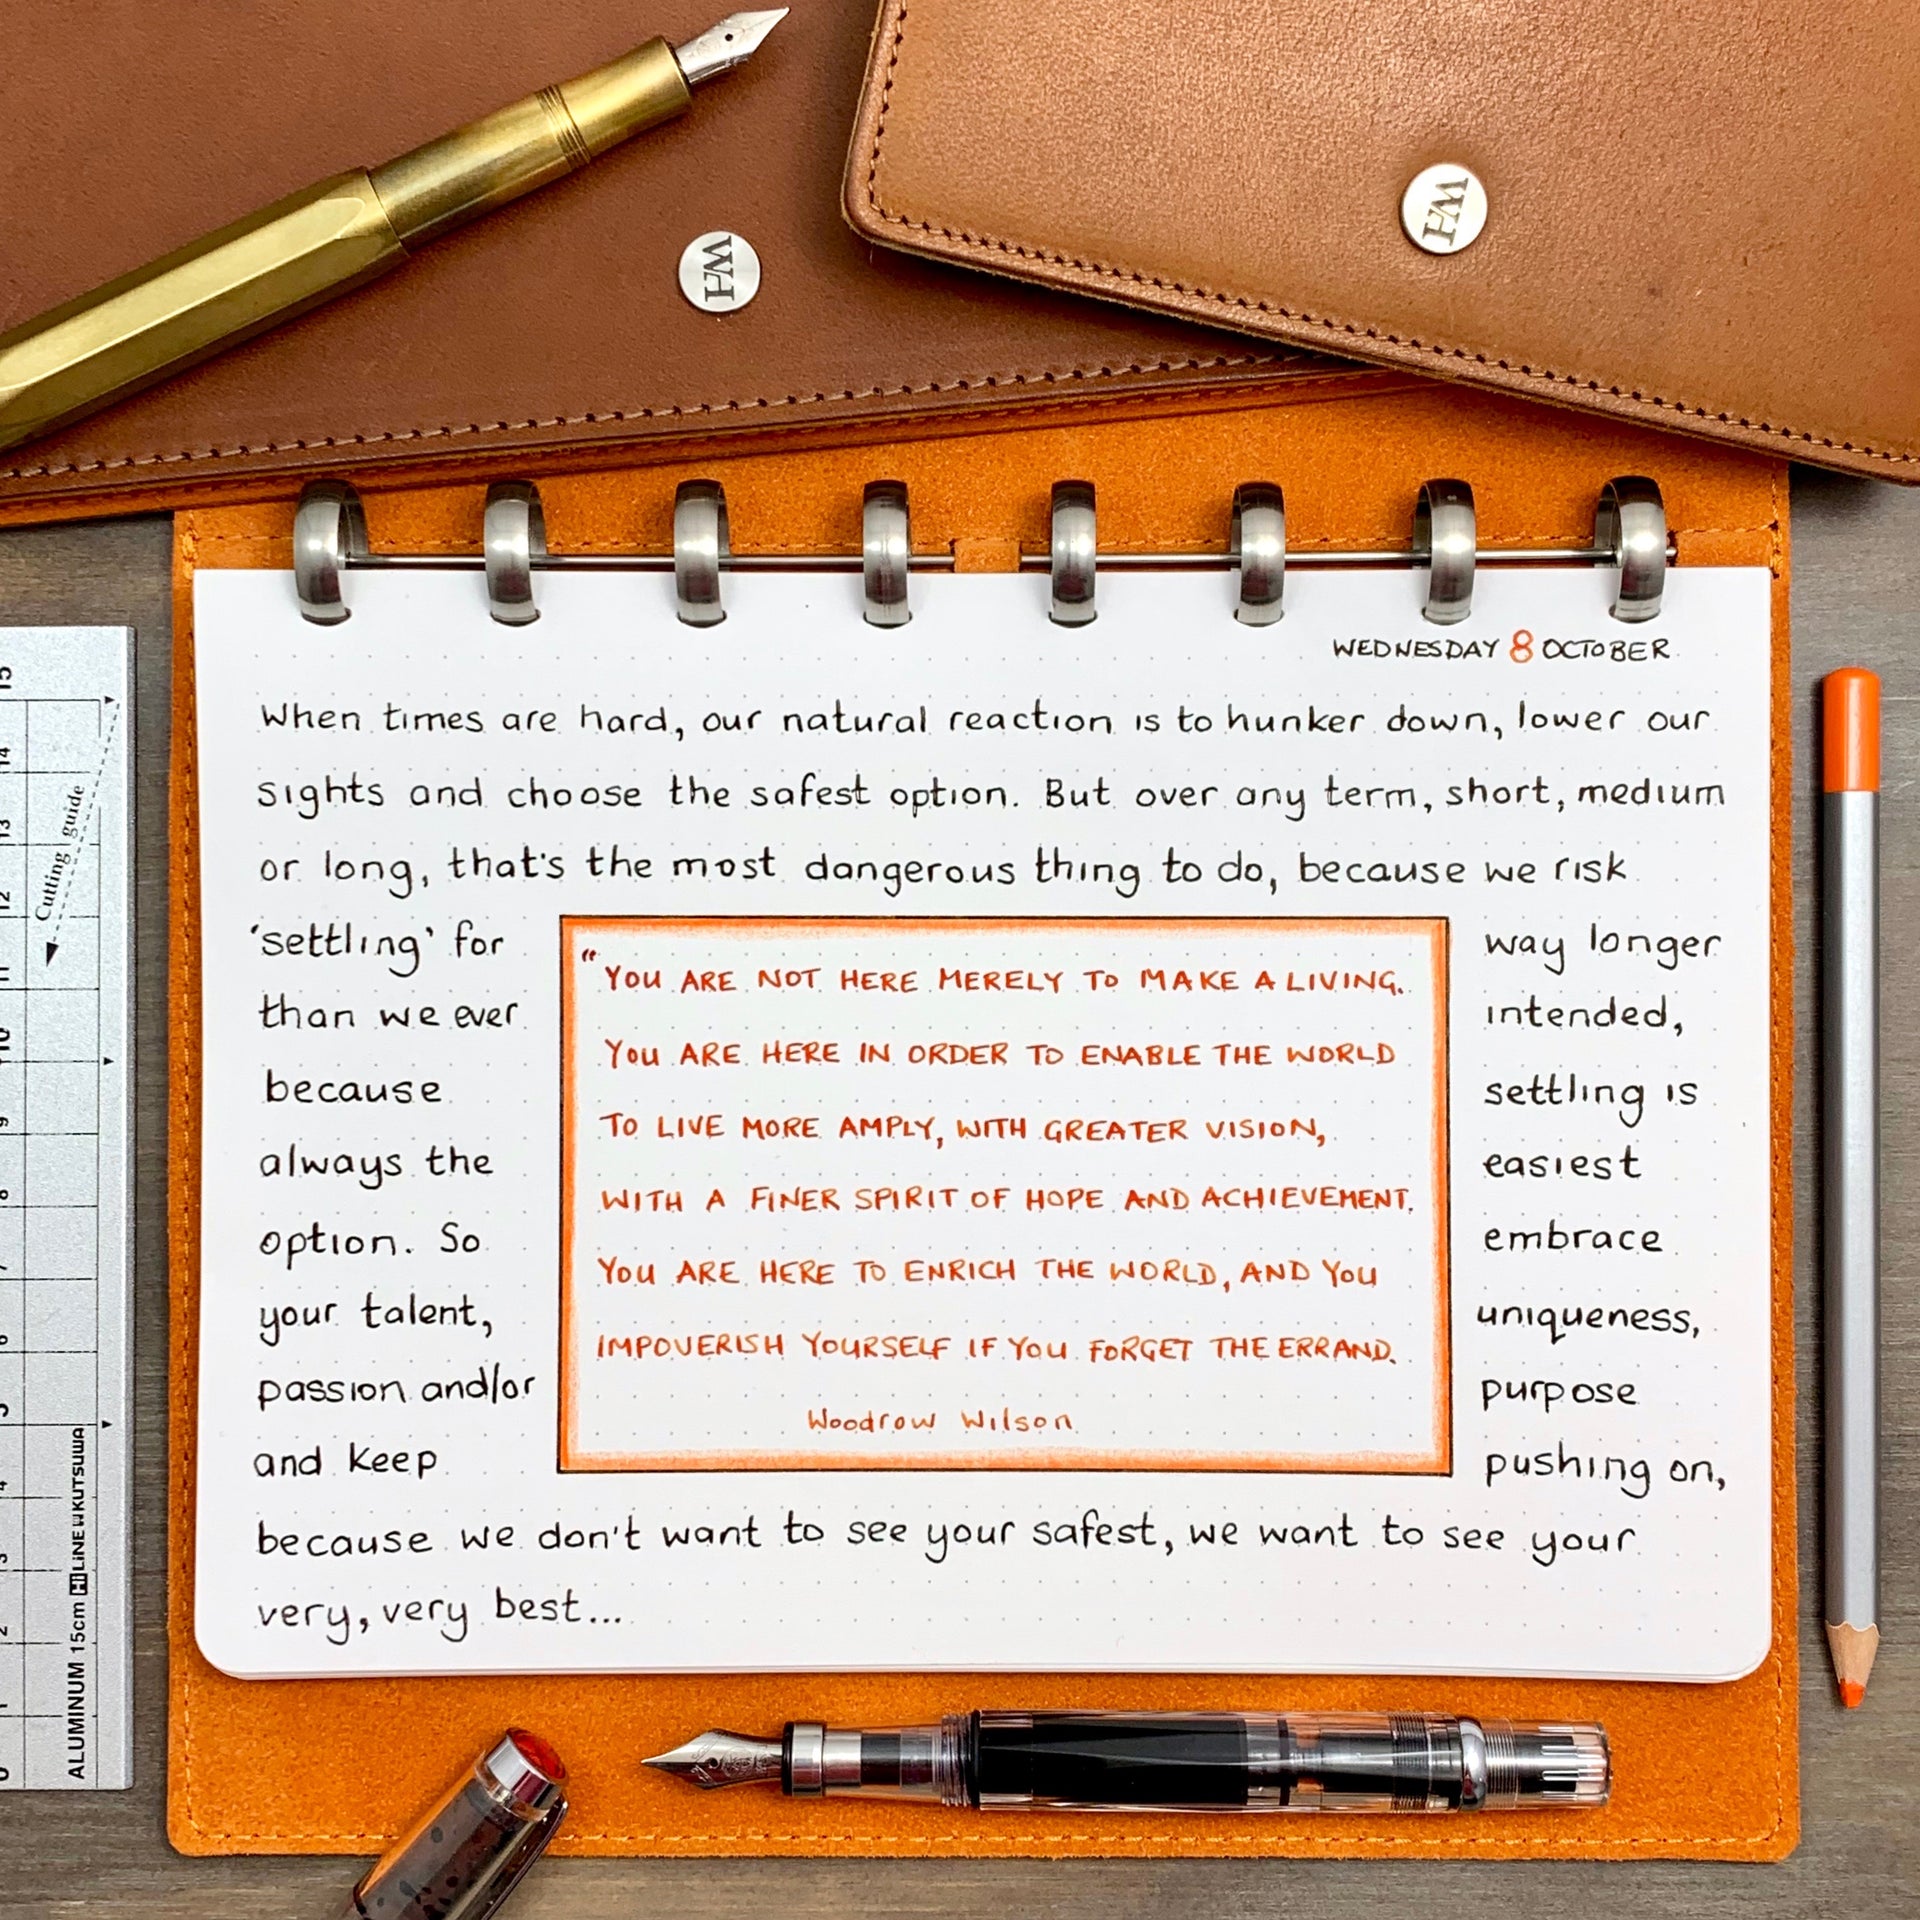 WH
WH
WEDNESDAY 8 OCTOBER
When times are hard, our natural reaction is to hunker down, lower our
sights and choose the safest option. But over any term, short, medium
or long, that's the most dangerous thing to do, because we risk
'settling' for way longer
than we ever intended,
because settling is
always the easiest
option. So embrace
your talent, uniqueness,
passion and/or purpose
and keep pushing on,
because we don't want to see your safest, we want to see your
very, very best...
"YOU ARE NOT HERE MERELY TO MAKE A LIVING.
YOU ARE HERE IN ORDER TO ENABLE THE WORLD
TO LIVE MORE AMPLY, WITH GREATER VISION,
WITH A FINER SPIRIT OF HOPE AND ACHIEVEMENT.
YOU ARE HERE TO ENRICH THE WORLD, AND YOU
IMPOVERISH YOURSELF IF YOU FORGET THE ERRAND.
Woodrow Wilson
Cutting guide
ALUMINUM 15cm Hi LiNE KUTSUWA
0 1 2 3 4 5 6 7 8 9 10 11 12 13 14 15